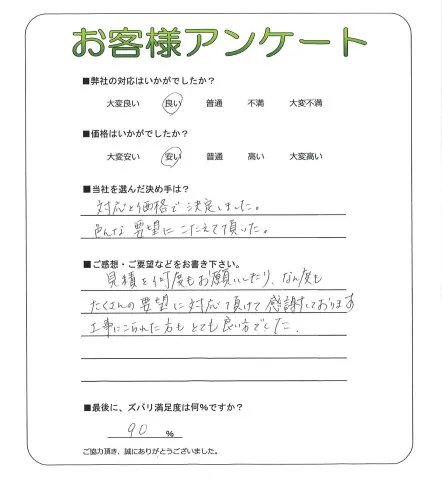 お客様アンケート
■弊社の対応はいかがでしたか？
大変良い 良い 普通 不満 大変不満
■価格はいかがでしたか？
大変安い 安い 普通 高い 大変高い
■当社を選んだ決め手は？
対応と価格で決定しました。
色んな要望にこたえて頂いた。
■ご感想・ご要望などをお書き下さい。
見積を何度もお願いしたり、なん度も
たくさんの要望に対応頂けて感謝しております
工事にこられた方もとても良い方でした.
■最後に、ズバリ満足度は何％ですか？
90 ％
ご協力頂き、誠にありがとうございました。